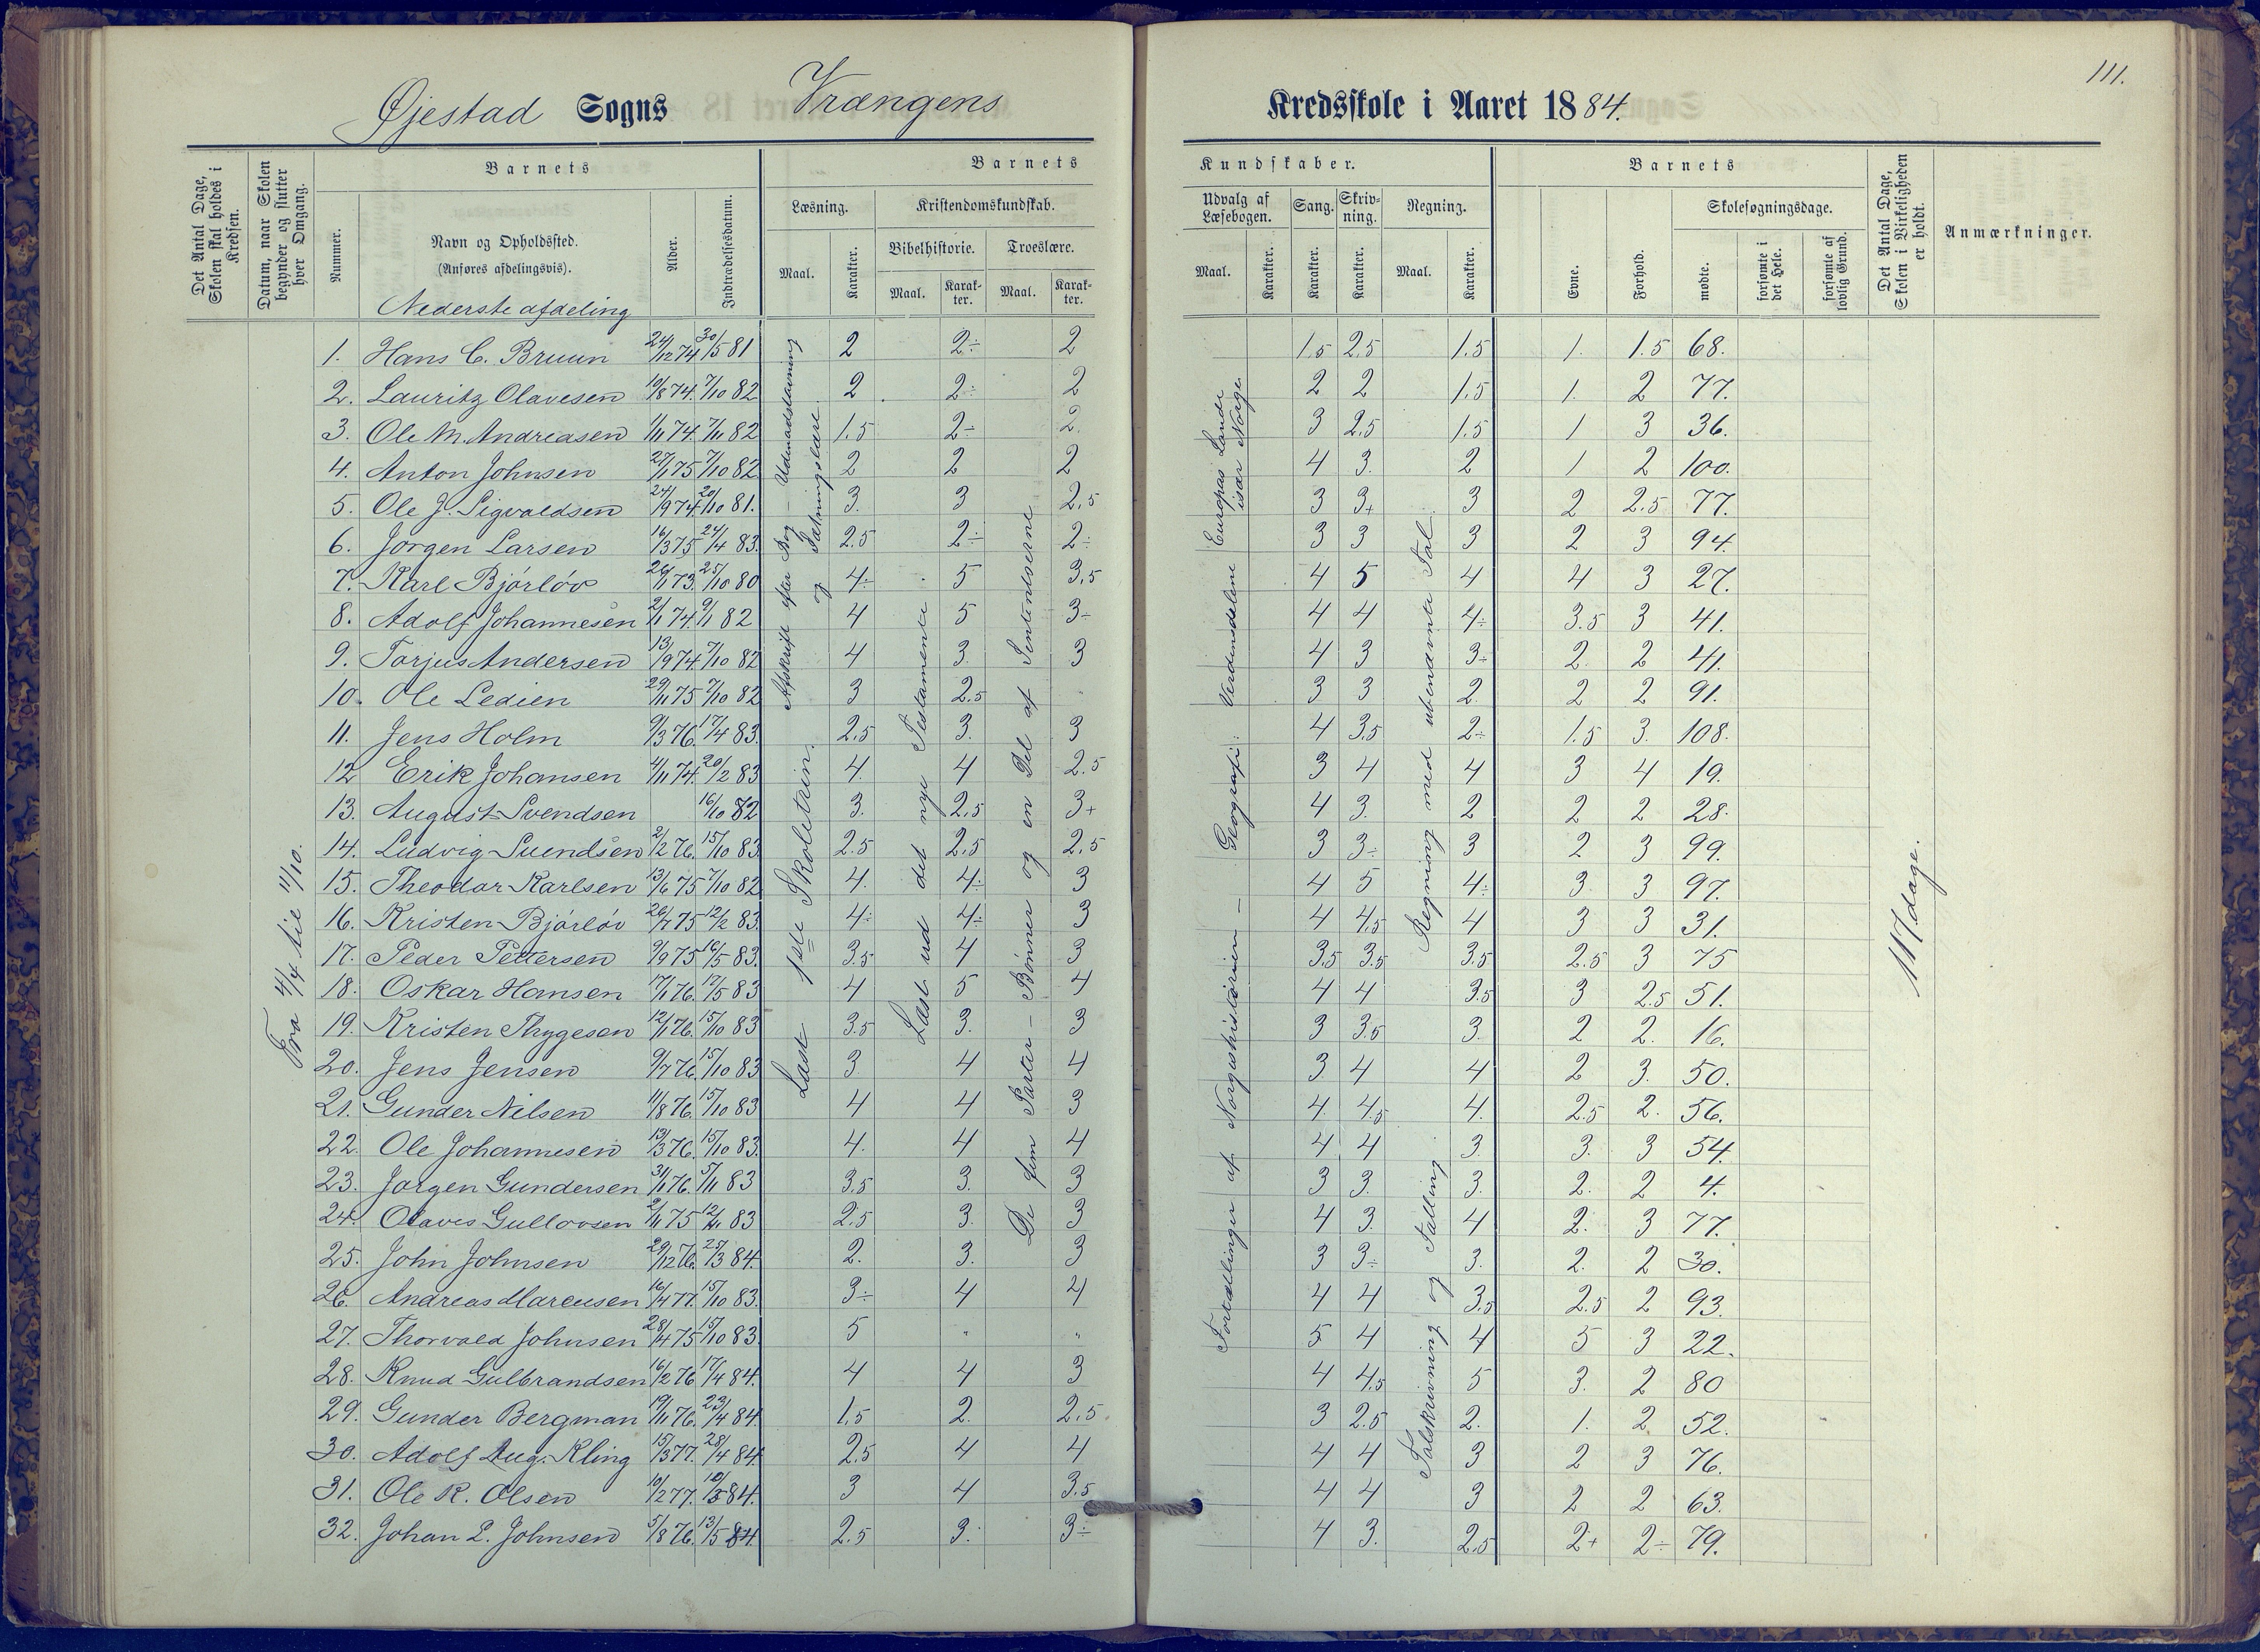 111.
Øjestad Sogns Vrængens Kredsskole i Aaret 1884.
Det Antal Dage, Skolen skal holdes i Kredsen.
Datum, naar Skolen begynder og slutter hver Omgang.
Barnets
Nummer.
Navn og Opholdssted.
(Anføres afdelingsvis).
Nederste afdeling
Alder.
Indtrædelsesdatum.
Barnets Kundskaber.
Læsning.
Maal.
Karakter.
Kristendomskundskab.
Bibelhistorie.
Maal.
Karakter.
Troeslære.
Maal.
Karakter.
Udvalg af Læsebogen.
Maal.
Karakter.
Sang.
Karakter.
Skrivning.
Karakter.
Regning.
Maal.
Karakter.
Barnets
Evne.
Forhold.
Skolesøgningsdage.
mødte.
forsømte i det Hele.
forsømte af lovlig Grund.
Det Antal Dage, Skolen i Virkeligheden er holdt.
Anmærkninger.
1. Hans C. Bruun 24/12 74 30/5 81 2 2÷ 2 1.5 2.5 1.5 1. 1.5 68.
2. Lauritz Olavesen 10/8 74. 7/10 82 2 2÷ 2 2 2 1.5 1. 2 77.
3. Ole M. Andreasen 1/11 74. 7/11 82 1.5 2÷ 2. 3 2.5 1.5 1 3 36.
4. Anton Johnsen 27/1 75 7/10 82 2 2 2 4 3. 2 1 2 100.
5. Ole J. Sigvaldsen 24/9 74. 20/10 81. 3. 3 2.5 3 3+ 3 2 2.5 77.
6. Jørgen Larsen 16/3 75 24/4 83. 2.5 2÷ 2÷ 3 3 3 2 3 94.
7. Karl Bjørløv 26/1 73. 25/10 80 4÷ 5 3.5 4 5 4 4 3 27.
8. Adolf Johannesen 2/1 74. 9/1 82 4 5 3÷ 4 4 4÷ 3.5 3 41.
9. Torjus Andersen 13/9 74. 7/10 82 4 3. 3 4 3 3÷ 2. 2 41.
10. Ole Ledien 29/11 75 7/10 82 3 2.5 3 3 2 2 2 91.
11. Jens Holm 9/3 76. 17/4 83. 2.5 3. 3 4 3.5 2÷ 1.5 3. 108.
12 Erik Johansen 4/11 74. 20/2 83 4. 4 2.5 3 4 4 3 4 19.
13. August Svendsen 16/10 82 3. 2.5 3+ 4 3. 2 2 2 28.
14. Ludvig Suendsen 2/2 76. 15/10 83. 2.5 2.5 2.5 3 3÷ 3 2 3 99.
15. Theodor Karlsen 13/6 75 7/10 82 4. 4÷ 3 4 5 4÷ 3. 3 97.
16. Kristen Bjørløv 26/7 75 12/2 83. 4÷ 4÷ 3 4 4.5 4 3 3 31.
17. Peder Pettersen 9/9 75 16/5 83. 3.5 4 3 3.5 3.5 3.5 2.5 3 75
18. Oskar Hansen 17/1 76. 17/5 83 4 5 4 4 4 3.5 3 2.5 51.
19. Kristen Thygesen 12/1 76. 15/10 83 3.5 3. 3 3 3.5 3. 2 2. 16.
20. Jens Jensen 9/7 76. 15/10 83 3. 4 4 3 4 4 2 3. 50.
21. Gunder Nilsen 11/8 76. 15/10 83 4 4 3 4. 4.5 4. 2.5 2. 56.
22. Ole Johannesen 13/3 76. 15/10 83. 4. 4 4 4 4 3. 3. 3 54.
23. Jørgen Gundersen 3/1 76. 5/11 83 3.5 3. 3 3 3. 3. 2. 2 4.
24. Olaves Gullovsen 2/11 75 12/11 83 2.5 3. 3 4 3. 4 2. 3 77.
25. John Johnsen 29/12 76. 25/3 84. 2. 3. 3 3 3÷ 3. 2. 2 30.
26. Andreas Marcusen 16/4 77. 15/10 83. 3÷ 4 4 4 4 3.5 2.5 2 93.
27. Thorvald Johnsen 28/4 75 15/10 83. 5 " " 5 4 4 5 3 22.
28. Knud Gulbrandsen 16/2 76 17/4 84. 4 4 3 4 4.5 5 3. 2 80
29. Gunder Bergman 19/11 76. 23/4 84. 1.5 2. 2.5. 3 2.5 2. 1. 2 52.
30. Adolf Aug. Kling 15/3 77. 28/4 84 2.5 4 4 4 4 3 2 3 76.
31. Ole R. Olsen 10/2 77. 12/5 84. 3 4 3.5 4 4 3 2 2 63.
32. Johan L. Johnsen 5/8 76. 13/5 84. 2.5 3. 3÷ 4 3. 2.5 2+ 2÷ 79.
Fra 4/4 til 11/10.
Læst 1ste Skoletrin. Afskrift efter Bog – Udenadskrivning og Sætningslære
Læst ud det nye Testamente
De fem Parter – Bønner og en Del af Sententserne
Fortællinger af Norgeshistorien – Geografi: Verdensdelene Europas Lande især Norge.
Talskrivning og Tælling Regning med ubenævnte Tal.
117 dage.